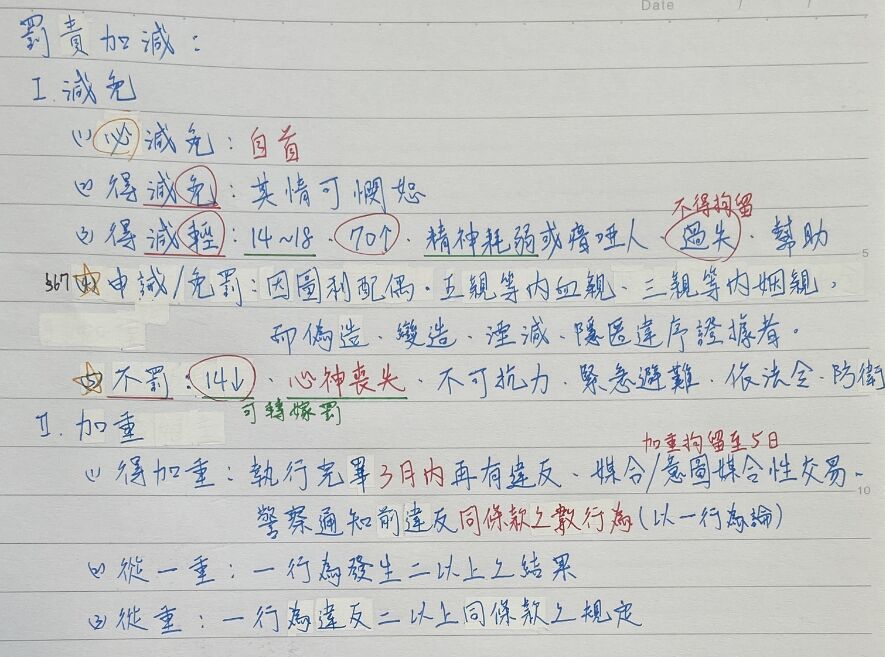 Date / /
罰責加減：
I. 減免
(1) 必減免：自首
(2) 得減免：其情可憫恕
不得拘留
(3) 得減輕：14~18、70↑、精神耗弱或瘖啞人、過失、幫助
5
367 (4) 申誡/免罰：因圖利配偶、五親等內血親、三親等內姻親，
而偽造、變造、湮滅、隱匿違序證據者。
(5) 不罰：14↓、心神喪失、不可抗力、緊急避難、依法令、防衛
可轉嫁罰
II. 加重
加重拘留至5日
(1) 得加重：執行完畢3月內再有違反、媒合/意圖媒合性交易、
10
警察通知前違反同條款之數行為(以一行為論)
(2) 從一重：一行為發生二以上之結果
(3) 從重：一行為違反二以上同條款之規定